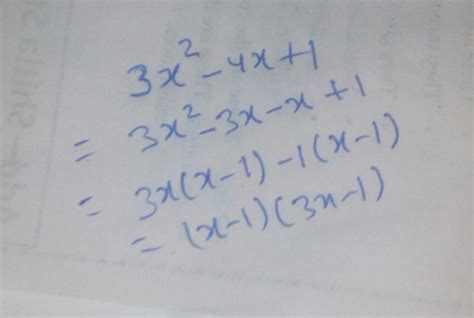 3x² - 4x + 1
= 3x² - 3x - x + 1
= 3x(x - 1) - 1(x - 1)
= (x - 1)(3x - 1)